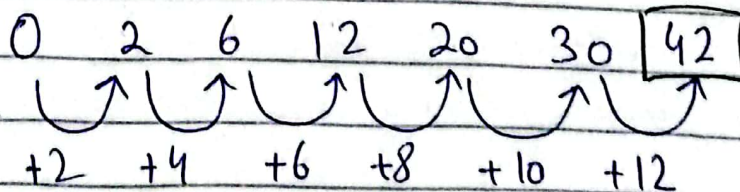 0 2 6 12 20 30 42
+2 +4 +6 +8 +10 +12